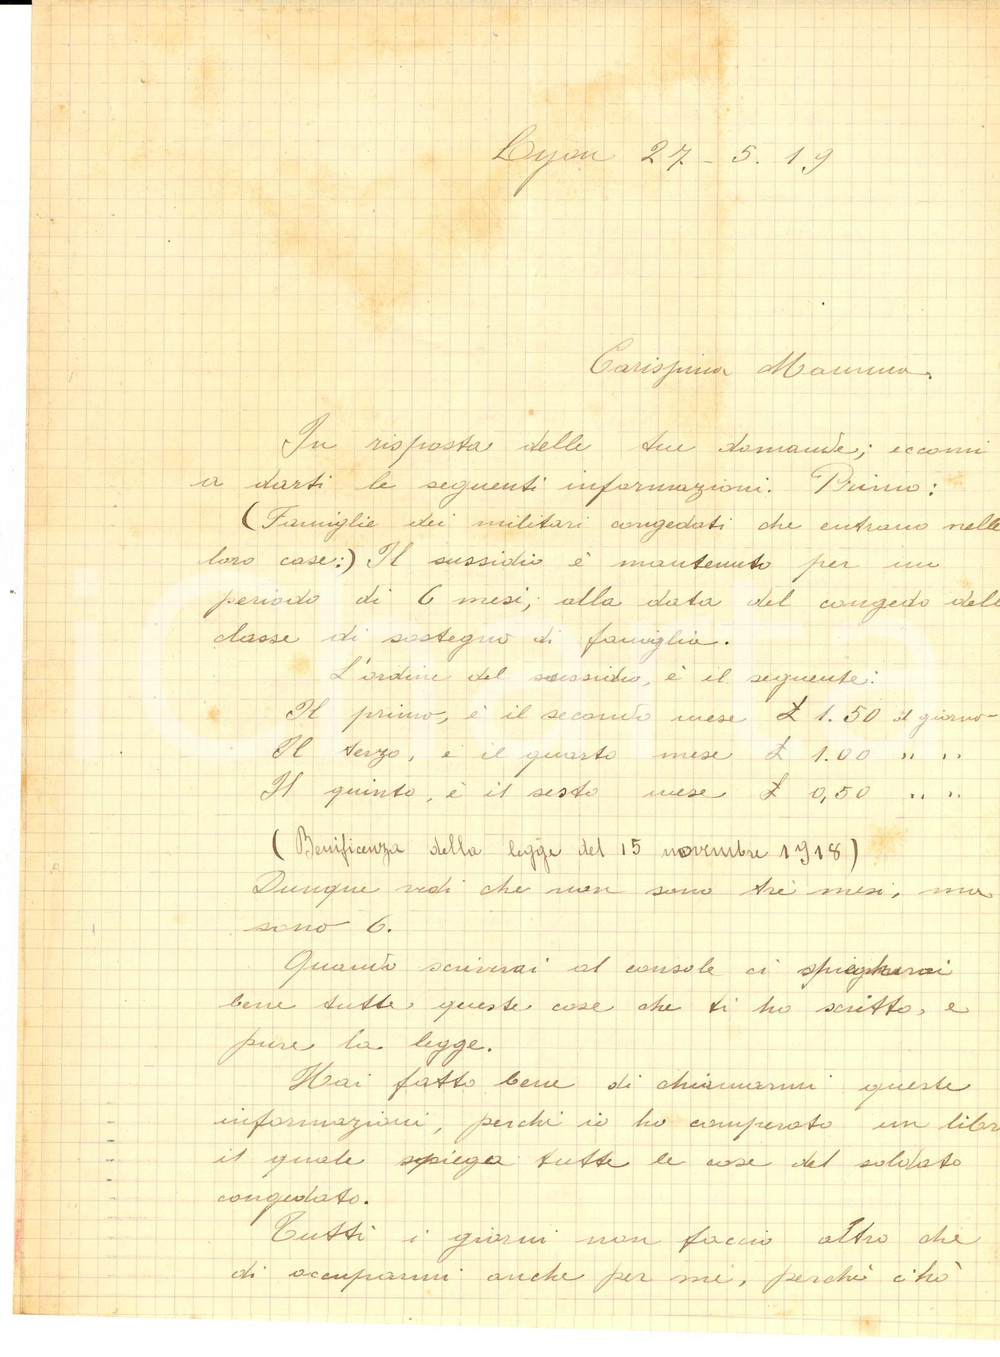 Lyon 27-5.19
Carissima Mamma.
In risposta delle tue domande; eccomi
a darti le seguenti informazioni. Primo:
(Famiglie dei militari congedati che entrano nelle
loro case:) Il sussidio è mantenuto per un
periodo di 6 mesi; alla data del congedo dell
classe di sostegno di famiglia.
L'ordine del sussidio, è il seguente:
Il primo, è il secondo mese £ 1.50 al giorno-
Il terzo, e il quarto mese £ 1.00 " "
Il quinto, è il sesto mese £ 0,50 " "
(Benificenza della legge del 15 novembre 1918)
Dunque vedi che non sono trè mesi, ma
sono 6.
Quando scriverai al console ci spiegherai
bene tutte queste cose che ti ho scritto, e
pure la legge.
Hai fatto bene di chiamarmi queste
informazioni, perchè io ho comperato un libr
il quale spiega tutte le cose del soldato
congedato.
Tutti i giorni non faccio altro che
di occuparmi anche per me, perchè c'hò